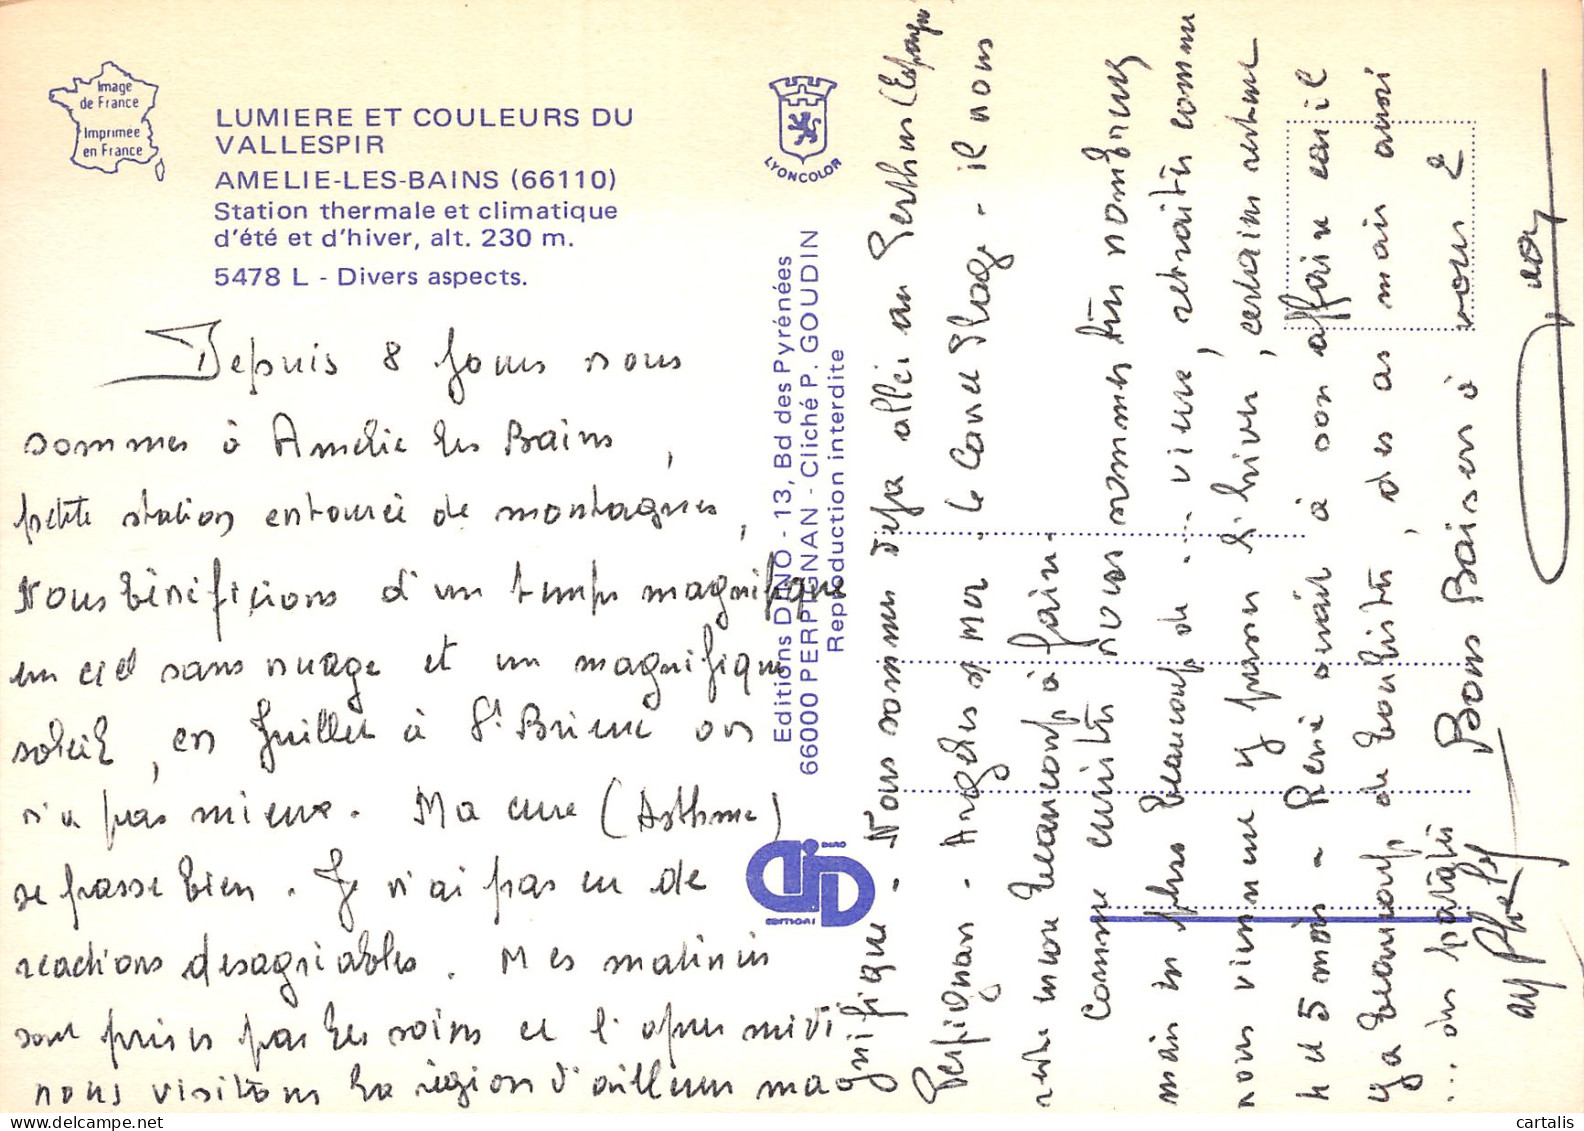 Image
de France
Imprimée
en France
LUMIERE ET COULEURS DU
VALLESPIR
AMELIE-LES-BAINS (66110)
Station thermale et climatique
d'été et d'hiver, alt. 230 m.
5478 L - Divers aspects.
LYONCOLOR
Editions DINO - 13, Bd des Pyrénées
66000 PERPIGNAN - Cliché P. GOUDIN
Reproduction interdite
DINO
EDITIONS
Depuis 8 Jours nous
sommes à Amélie les Bains,
petite station entourée de montagnes,
Nous bénéficions d'un temps magnifique
un ciel sans nuage et un magnifique
soleil, en Juillet à St Brieuc on
n'a pas mieux. Ma cure (Asthme)
se passe bien. Je n'ai pas eu de
reactions desagréables. Mes matinées
sont prises par les soins et l'apres midi
nous visitons la région d'ailleurs
magnifique. Nous sommes deja allés au Perthus (Espagne
Perpignan. Argeles s/ mer. le Canet Plage - il nous
reste encore beaucoup à faire.
Comme curistes nous sommes très nombreux
mais en plus beaucoup de ... vieux, retraités comme
nous viennent y passer l'hiver, certains restent
4 et 5 mois - René avait à son affaire car il
y a beaucoup de boulistes, des as mais aussi
... des patates Bons Baisers à vous 2